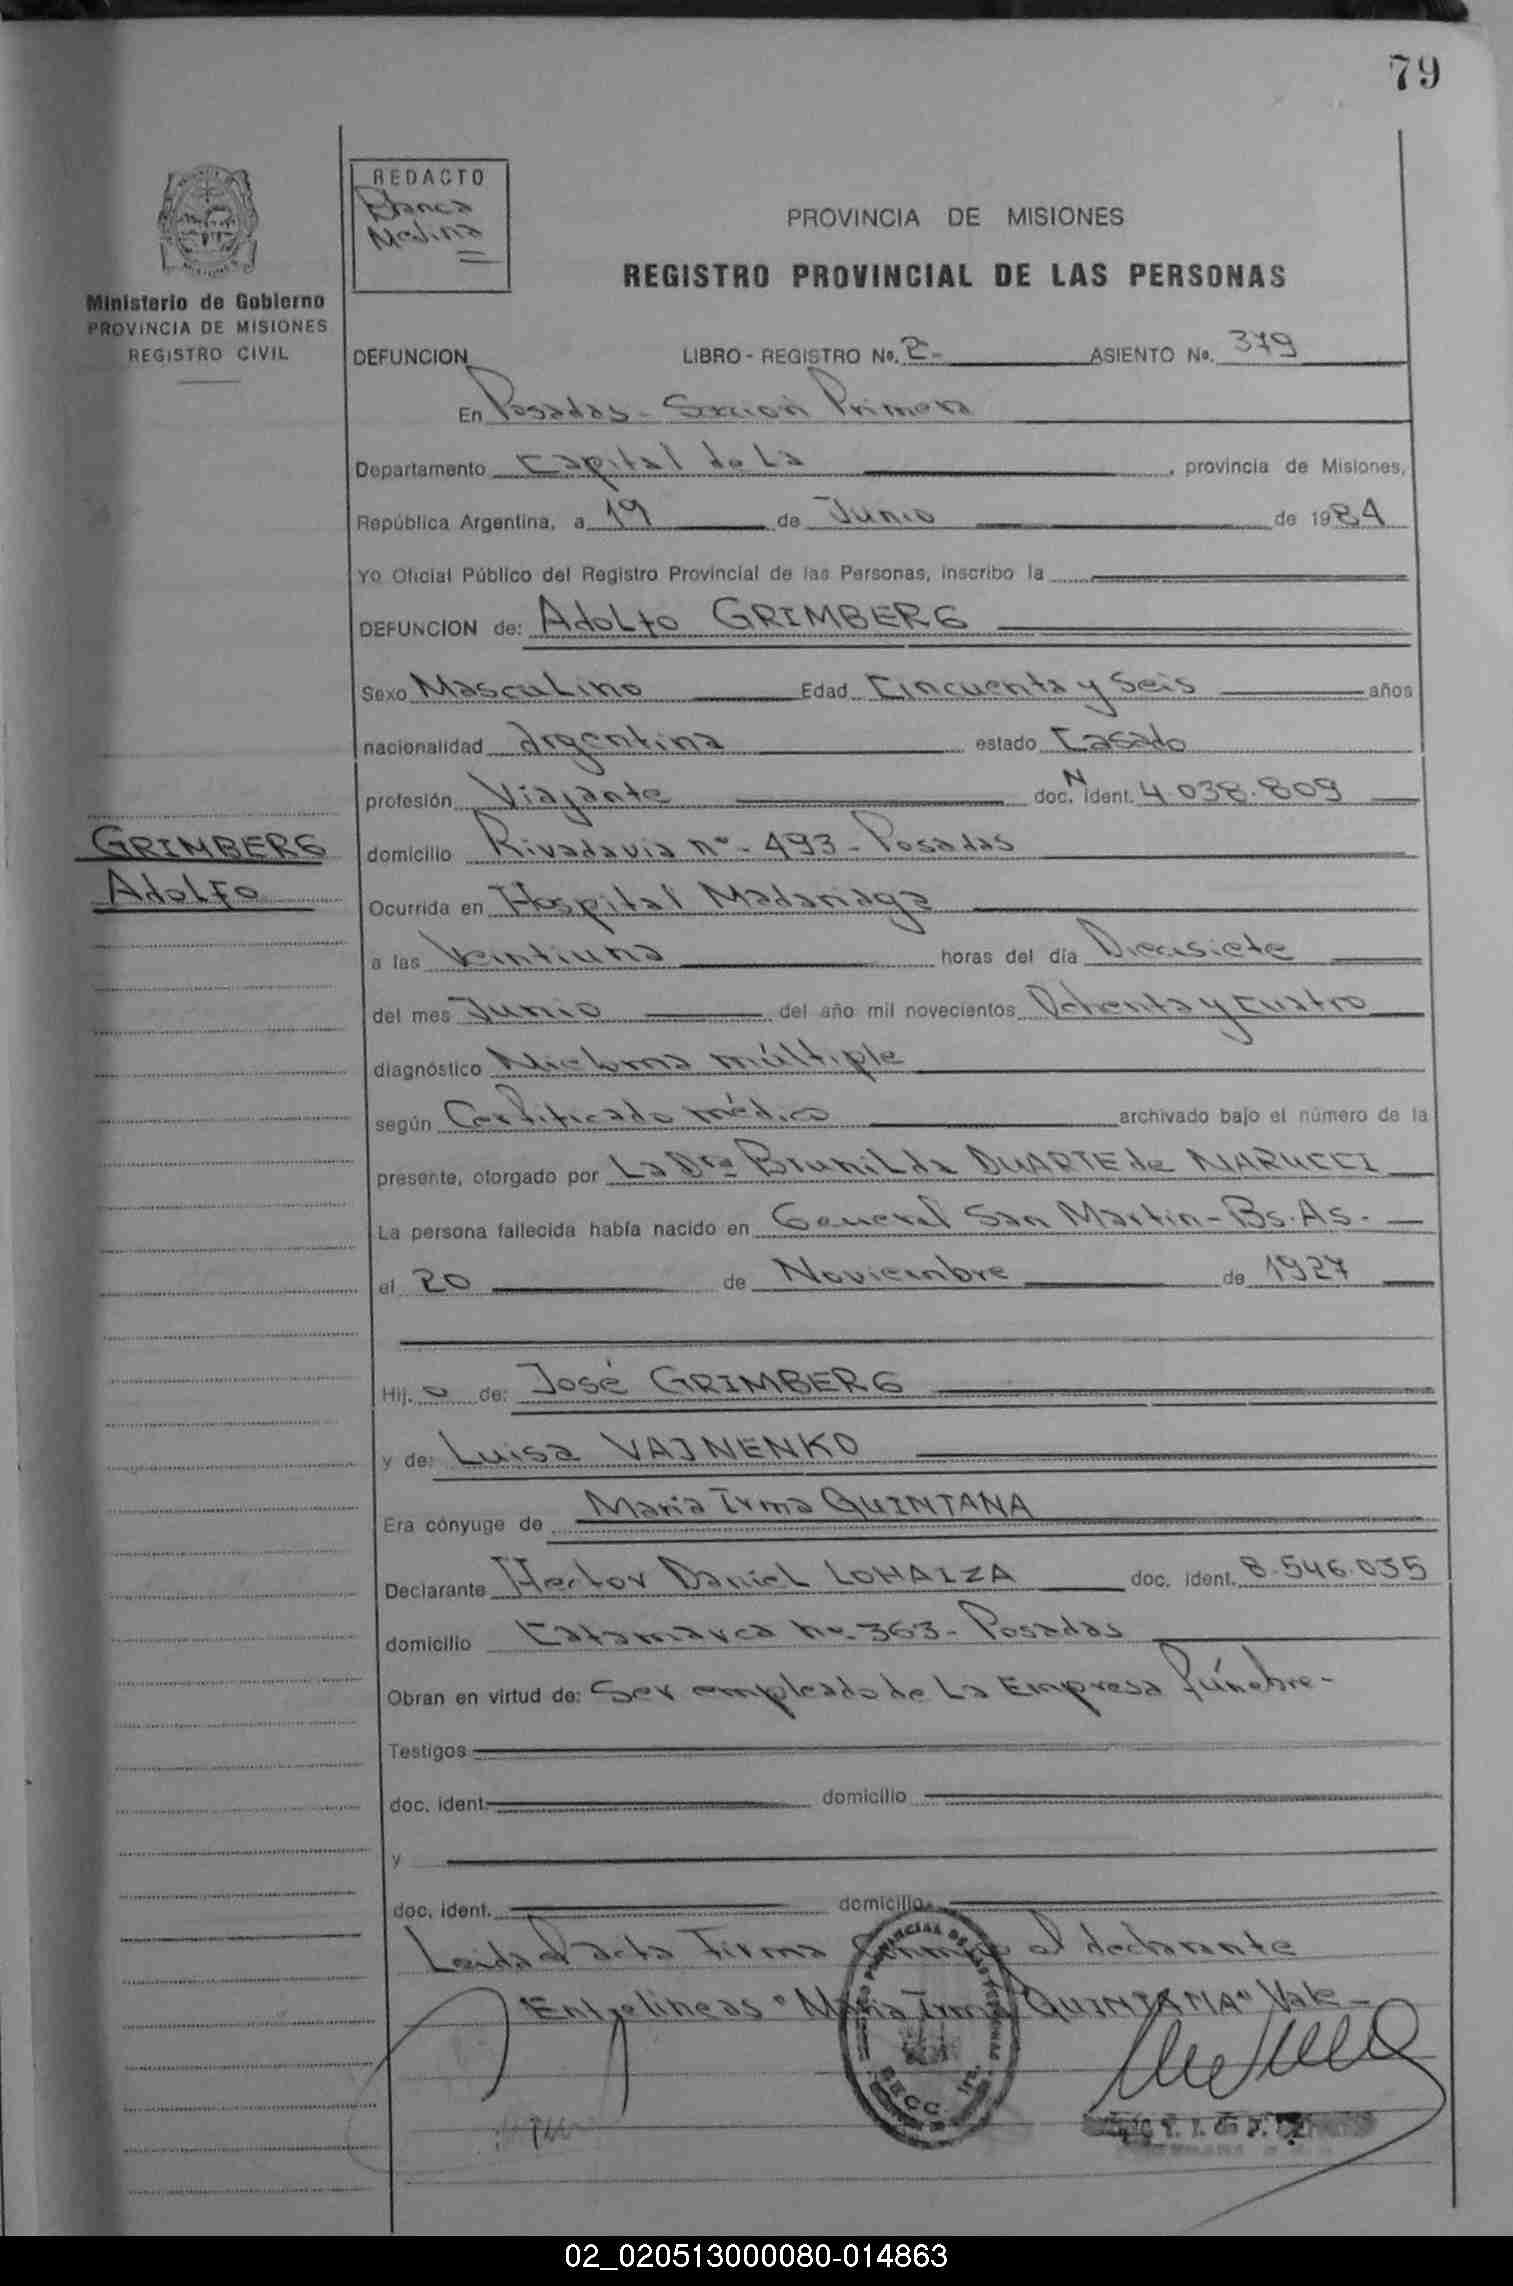 79
REDACTO
Blanca
Medina
PROVINCIA DE MISIONES
REGISTRO PROVINCIAL DE LAS PERSONAS
Ministerio de Gobierno
PROVINCIA DE MISIONES
REGISTRO CIVIL
DEFUNCION LIBRO - REGISTRO No. 2- ASIENTO No. 379
En Posadas - Sección Primera
Departamento Capital de La , provincia de Misiones,
República Argentina, a 19 de Junio de 1984
Yo Oficial Público del Registro Provincial de las Personas, inscribo la
DEFUNCION de: Adolfo GRIMBERG
Sexo Masculino Edad Cincuenta y Seis años
nacionalidad Argentina estado Casado
profesión Viajante doc. N ident. 4.038.809
GRIMBERG
Adolfo
domicilio Rivadavia nº- 493 - Posadas
Ocurrida en Hospital Madariaga
a las Veintiuna horas del día Diecisiete
del mes Junio del año mil novecientos Ochenta y Cuatro
diagnóstico Mieloma múltiple
según Certificado médico archivado bajo el número de la
presente, otorgado por La Dra Brunilda DUARTE de NARUCCI
La persona fallecida había nacido en General San Martin - Bs. As. -
el 20 de Noviembre de 1927
Hij. o de: José GRIMBERG
y de: Luisa VAJNENKO
Era cónyuge de Maria Irma QUINTANA
Declarante Hector Daniel LOHAIZA doc. ident. 8.546.035
domicilio Catamarca nº- 363 - Posadas
Obran en virtud de: Ser empleado de La Empresa fúnebre -
Testigos
doc. ident. domicilio
y
doc. ident. domicilio
Leida el acta Firma Conmigo el declarante
Entrelineas "Maria Irma QUINTANA" Vale -
SECC. 1ra.
02_020513000080-014863